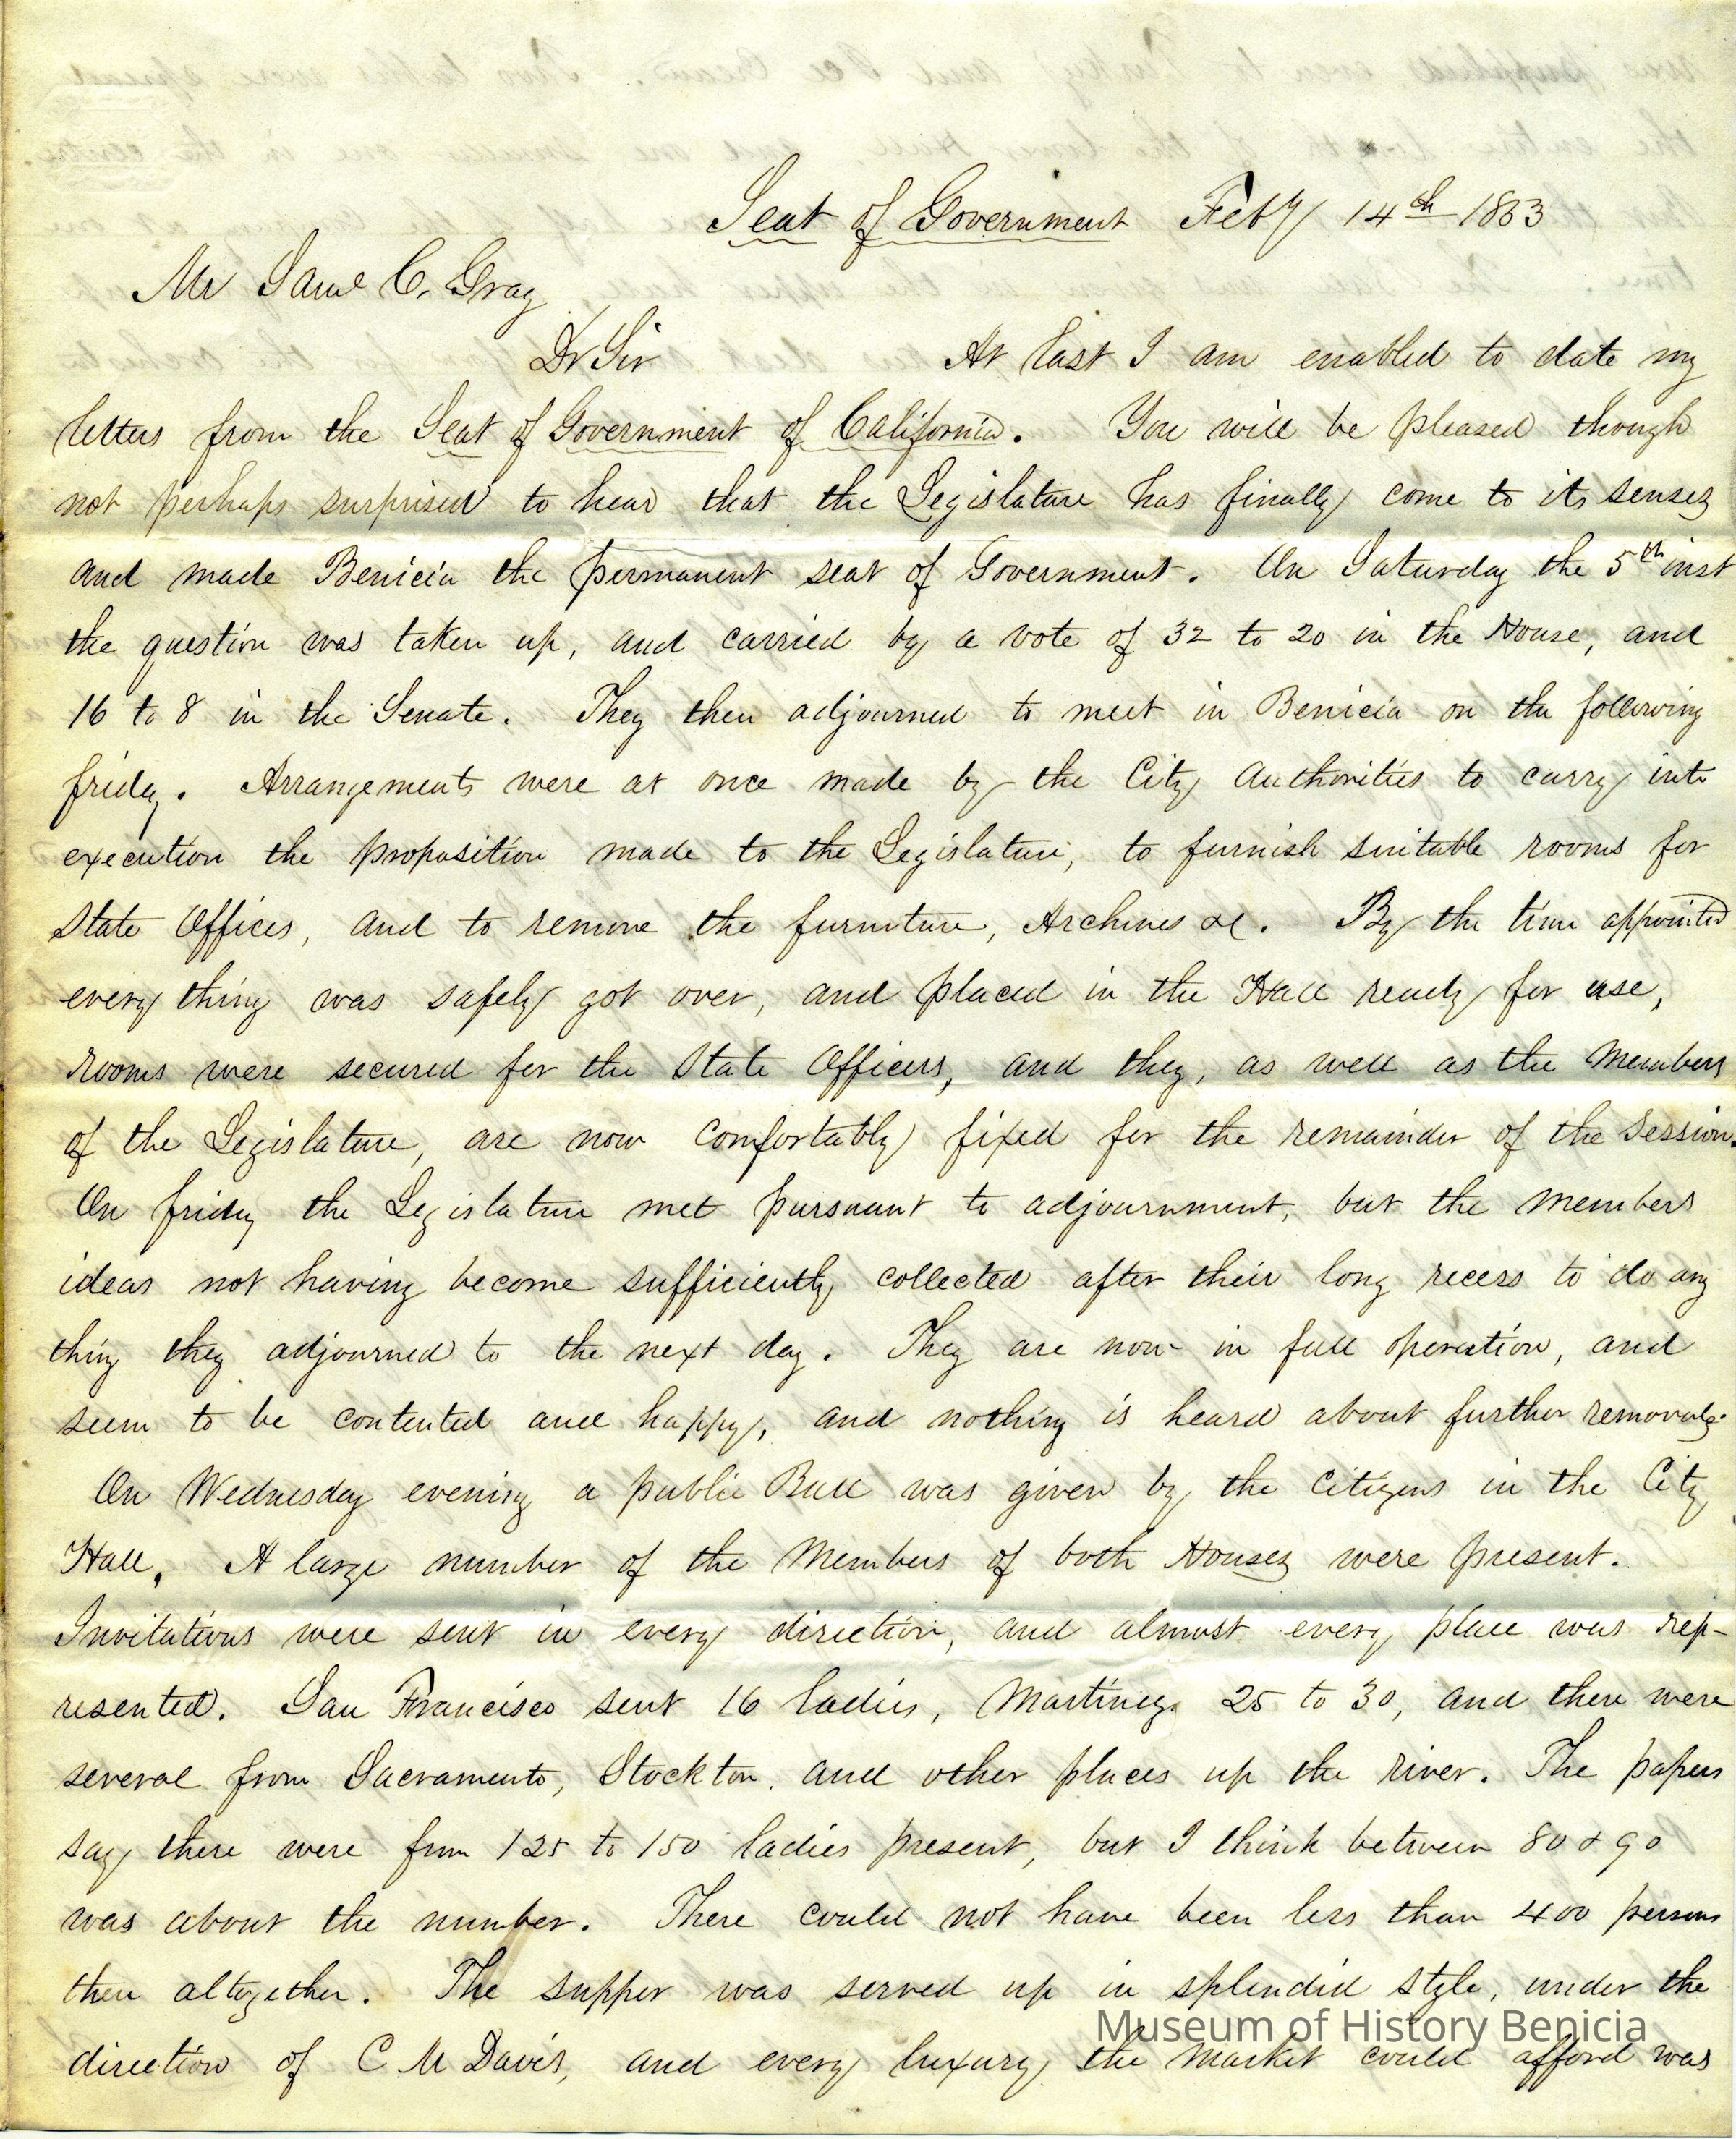 Seat of Government Feby 14th 1853
Mr Saml C. Gray
Dr Sir At last I am enabled to date my
letters from the Seat of Government of California. You will be pleased though
not perhaps surprised to hear that the Legislature has finally come to its senses
and made Benicia the permanent seat of Government. On Saturday the 5th inst
the question was taken up, and carried by a vote of 32 to 20 in the House, and
16 to 8 in the Senate. They then adjourned to meet in Benicia on the following
friday. Arrangements were at once made by the City Authorities to carry into
execution the proposition made to the Legislature, to furnish suitable rooms for
State Offices, and to remove the furniture, Archives &c. By the time appointed
every thing was safely got over, and placed in the Hall ready for use,
rooms were secured for the State Officers, and they, as well as the Members
of the Legislature, are now comfortably fixed for the remainder of the Session.
On friday the Legislature met pursuant to adjournment, but the members
ideas not having become sufficiently collected after their long recess to do any
thing they adjourned to the next day. They are now in full operation, and
seem to be contented and happy, and nothing is heard about further removals.
On Wednesday evening a public Ball was given by the citizens in the City
Hall. A large number of the Members of both Houses were present.
Invitations were sent in every direction, and almost every place was rep-
resented. San Francisco sent 16 ladies, Martinez 25 to 30, and there were
several from Sacramento, Stockton, and other places up the river. The papers
say there were from 125 to 150 ladies present, but I think between 80 & 90
was about the number. There could not have been less than 400 persons
then altogether. The supper was served up in splendid style, under the
direction of C M Davis, and every luxury the market could afford was
Museum of History Benicia